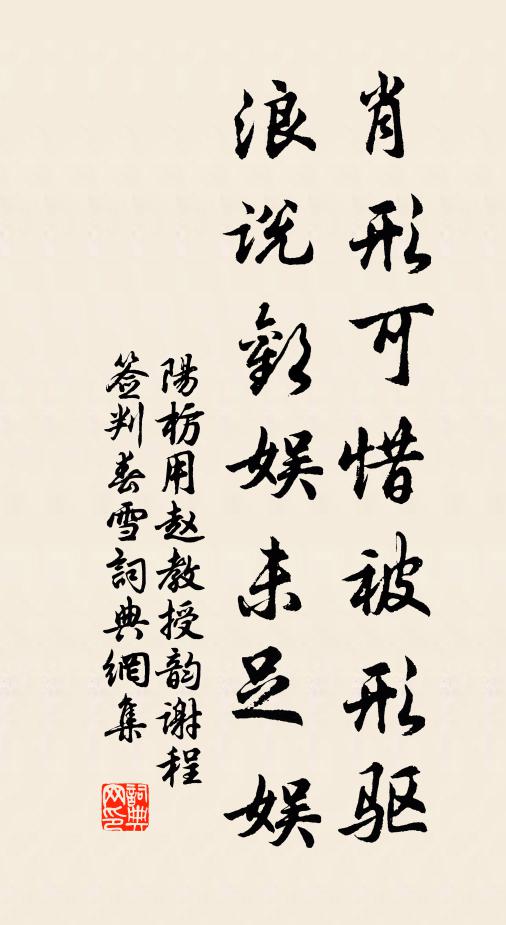 肖形可惜被形驱
浪说歡娱未足娱
陽枋用赵教授韵谢程
签判春雪詞典網集
詞典
网印